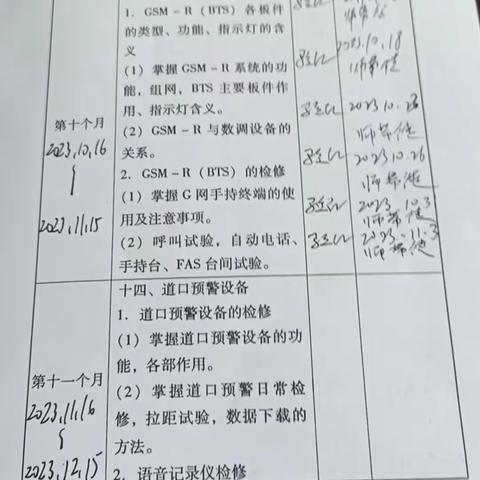 1. GSM-R(BTS)各板件
的类型、功能、指示灯的含
义
(1)掌握GSM-R系统的功
能,组网,BTS主要板件作
用、指示灯含义。
(2)GSM-R与数调设备的
关系。
2. GSM-R(BTS)的检修
(1)掌握G网手持终端的使
用及注意事项。
(2)呼叫试验,自动电话、
手持台、FAS台间试验。
第十个月
2023.10.16
2023.11.15
2023.10.18
2023.10.23
2023.10.26
2023.10.31
2023.11.3
十四、道口预警设备
1. 道口预警设备的检修
(1)掌握道口预警设备的功
能,各部作用。
(2)掌握道口预警日常检
修,拉距试验,数据下载的
方法。
2. 语音记录仪检修
第十一个月
2023.11.16
2023.12.15